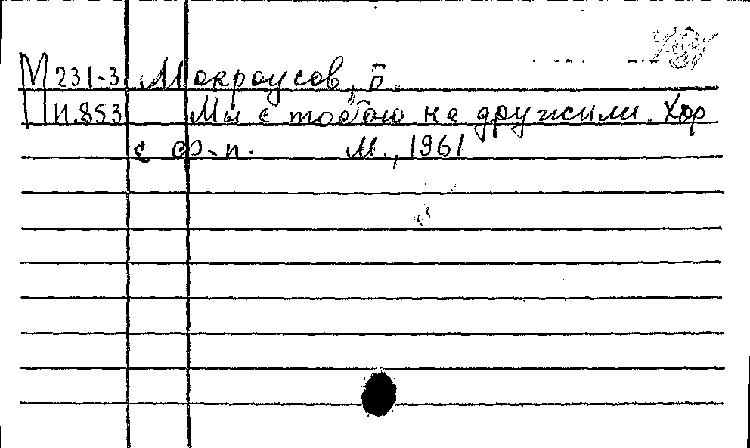 М 231-3 Мокроусов, Б.
П.853 Мы с тобою не дружили. Хор
с ф-п. М., 1961